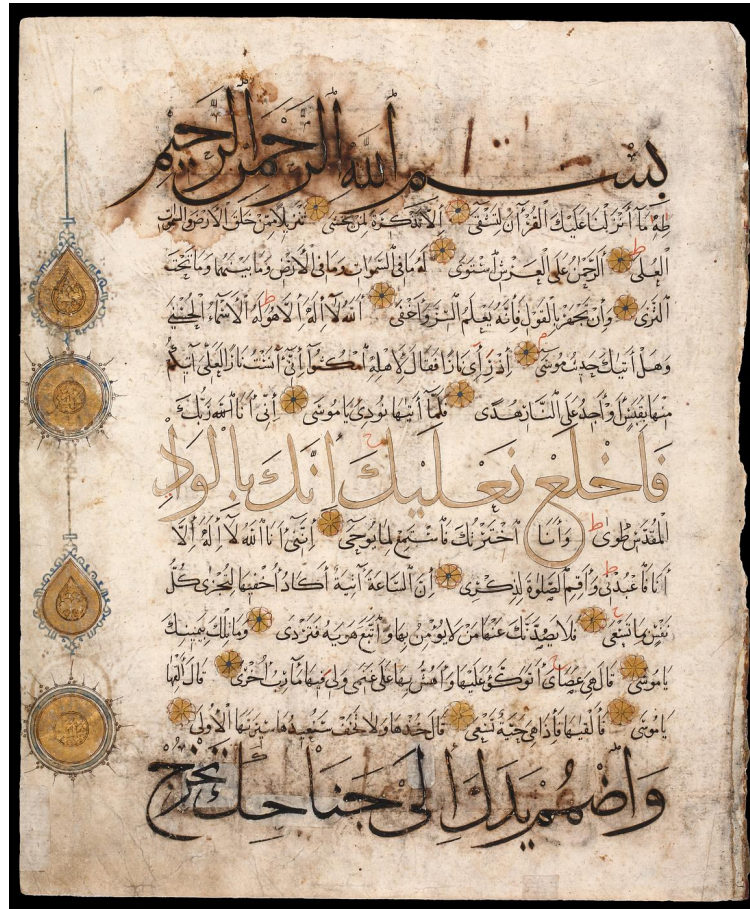 بسم الله الرحمن الرحيم
طه ما أنزلنا عليك القرآن لتشقى إلا تذكرة لمن يخشى تنزيلا ممن خلق الأرض والسموات
العلى الرحمن على العرش استوى له ما في السموات وما في الأرض وما بينهما وما تحت
الثرى وإن تجهر بالقول فإنه يعلم السر وأخفى الله لا إله إلا هو له الأسماء الحسنى
وهل أتيك حديث موسى إذ رأى نارا فقال لأهله امكثوا إني آنست نارا لعلي آتيكم
منها بقبس أو أجد على النار هدى فلما أتيها نودي يا موسى إني أنا الله ربك
فاخلع نعليك إنك بالواد
المقدس طوى وأنا اخترتك فاستمع لما يوحى إنني أنا الله لا إله إلا
أنا فاعبدني وأقم الصلوة لذكري إن الساعة آتية أكاد أخفيها لتجزى كل
نفس بما تسعى فلا يصدنك عنها من لا يؤمن بها واتبع هويه فتردى وما تلك بيمينك
يا موسى قال هي عصاي أتوكؤ عليها وأهش بها على غنمي ولي فيها مآرب أخرى قال ألقها
يا موسى فألقيها فإذا هي حية تسعى قال خذها ولا تخف سنعيدها سيرتها الأولى
واضمم يدك إلى جناحك تخرج